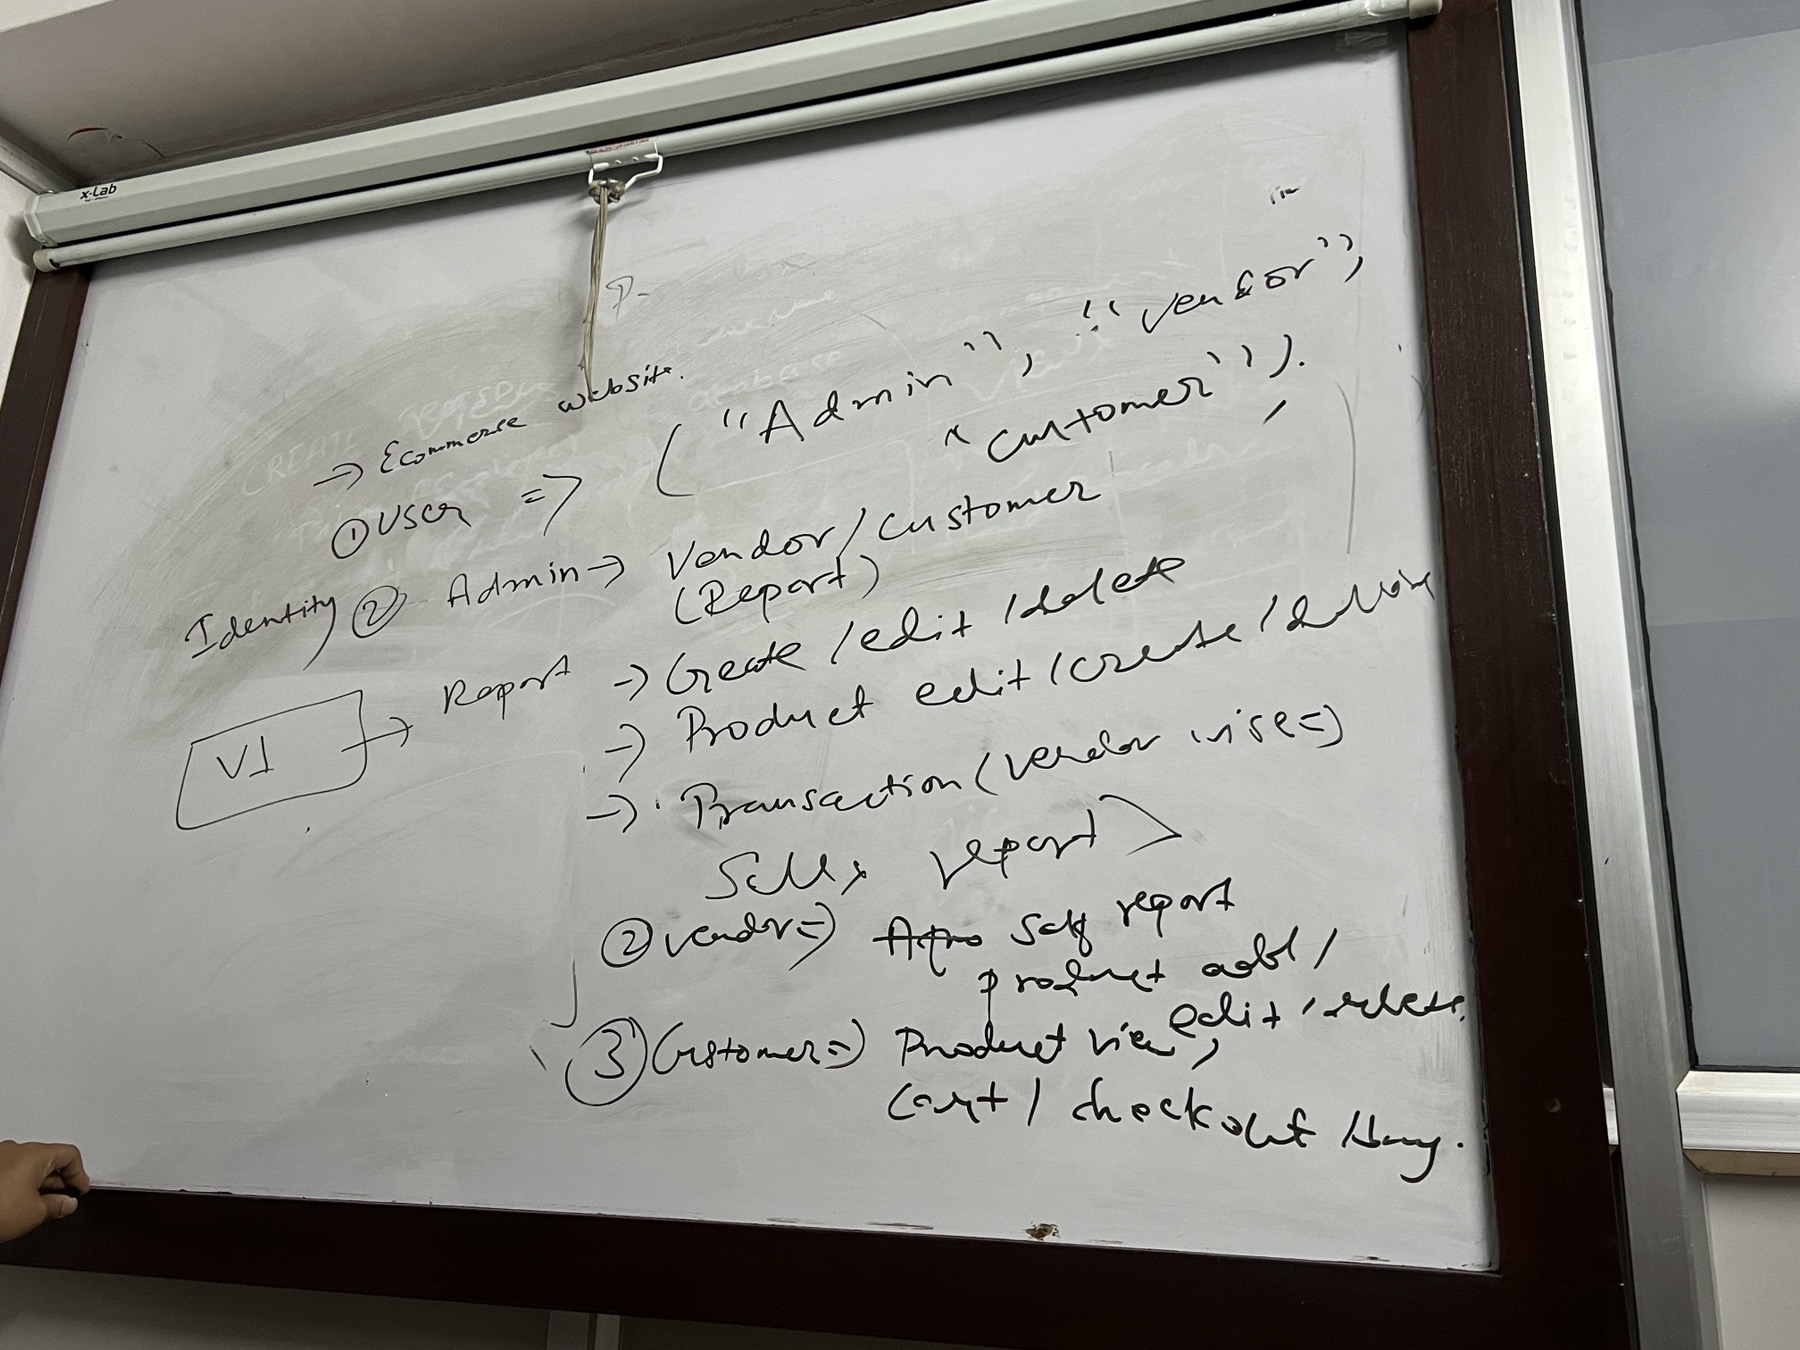 x-Lab
P-
→ Ecommerse website.
① User => ("Admin", "vendor",
"customer").
Identity ② Admin → Vendor/customer
(Report)
V1 → Report → Create/edit/delete
→ Product edit/create/
→ Transaction (vendor wise =>
Sells report)
② vendor => Self report
product add/
edit/delete.
③ Customer => Product view,
Cart/checkout/